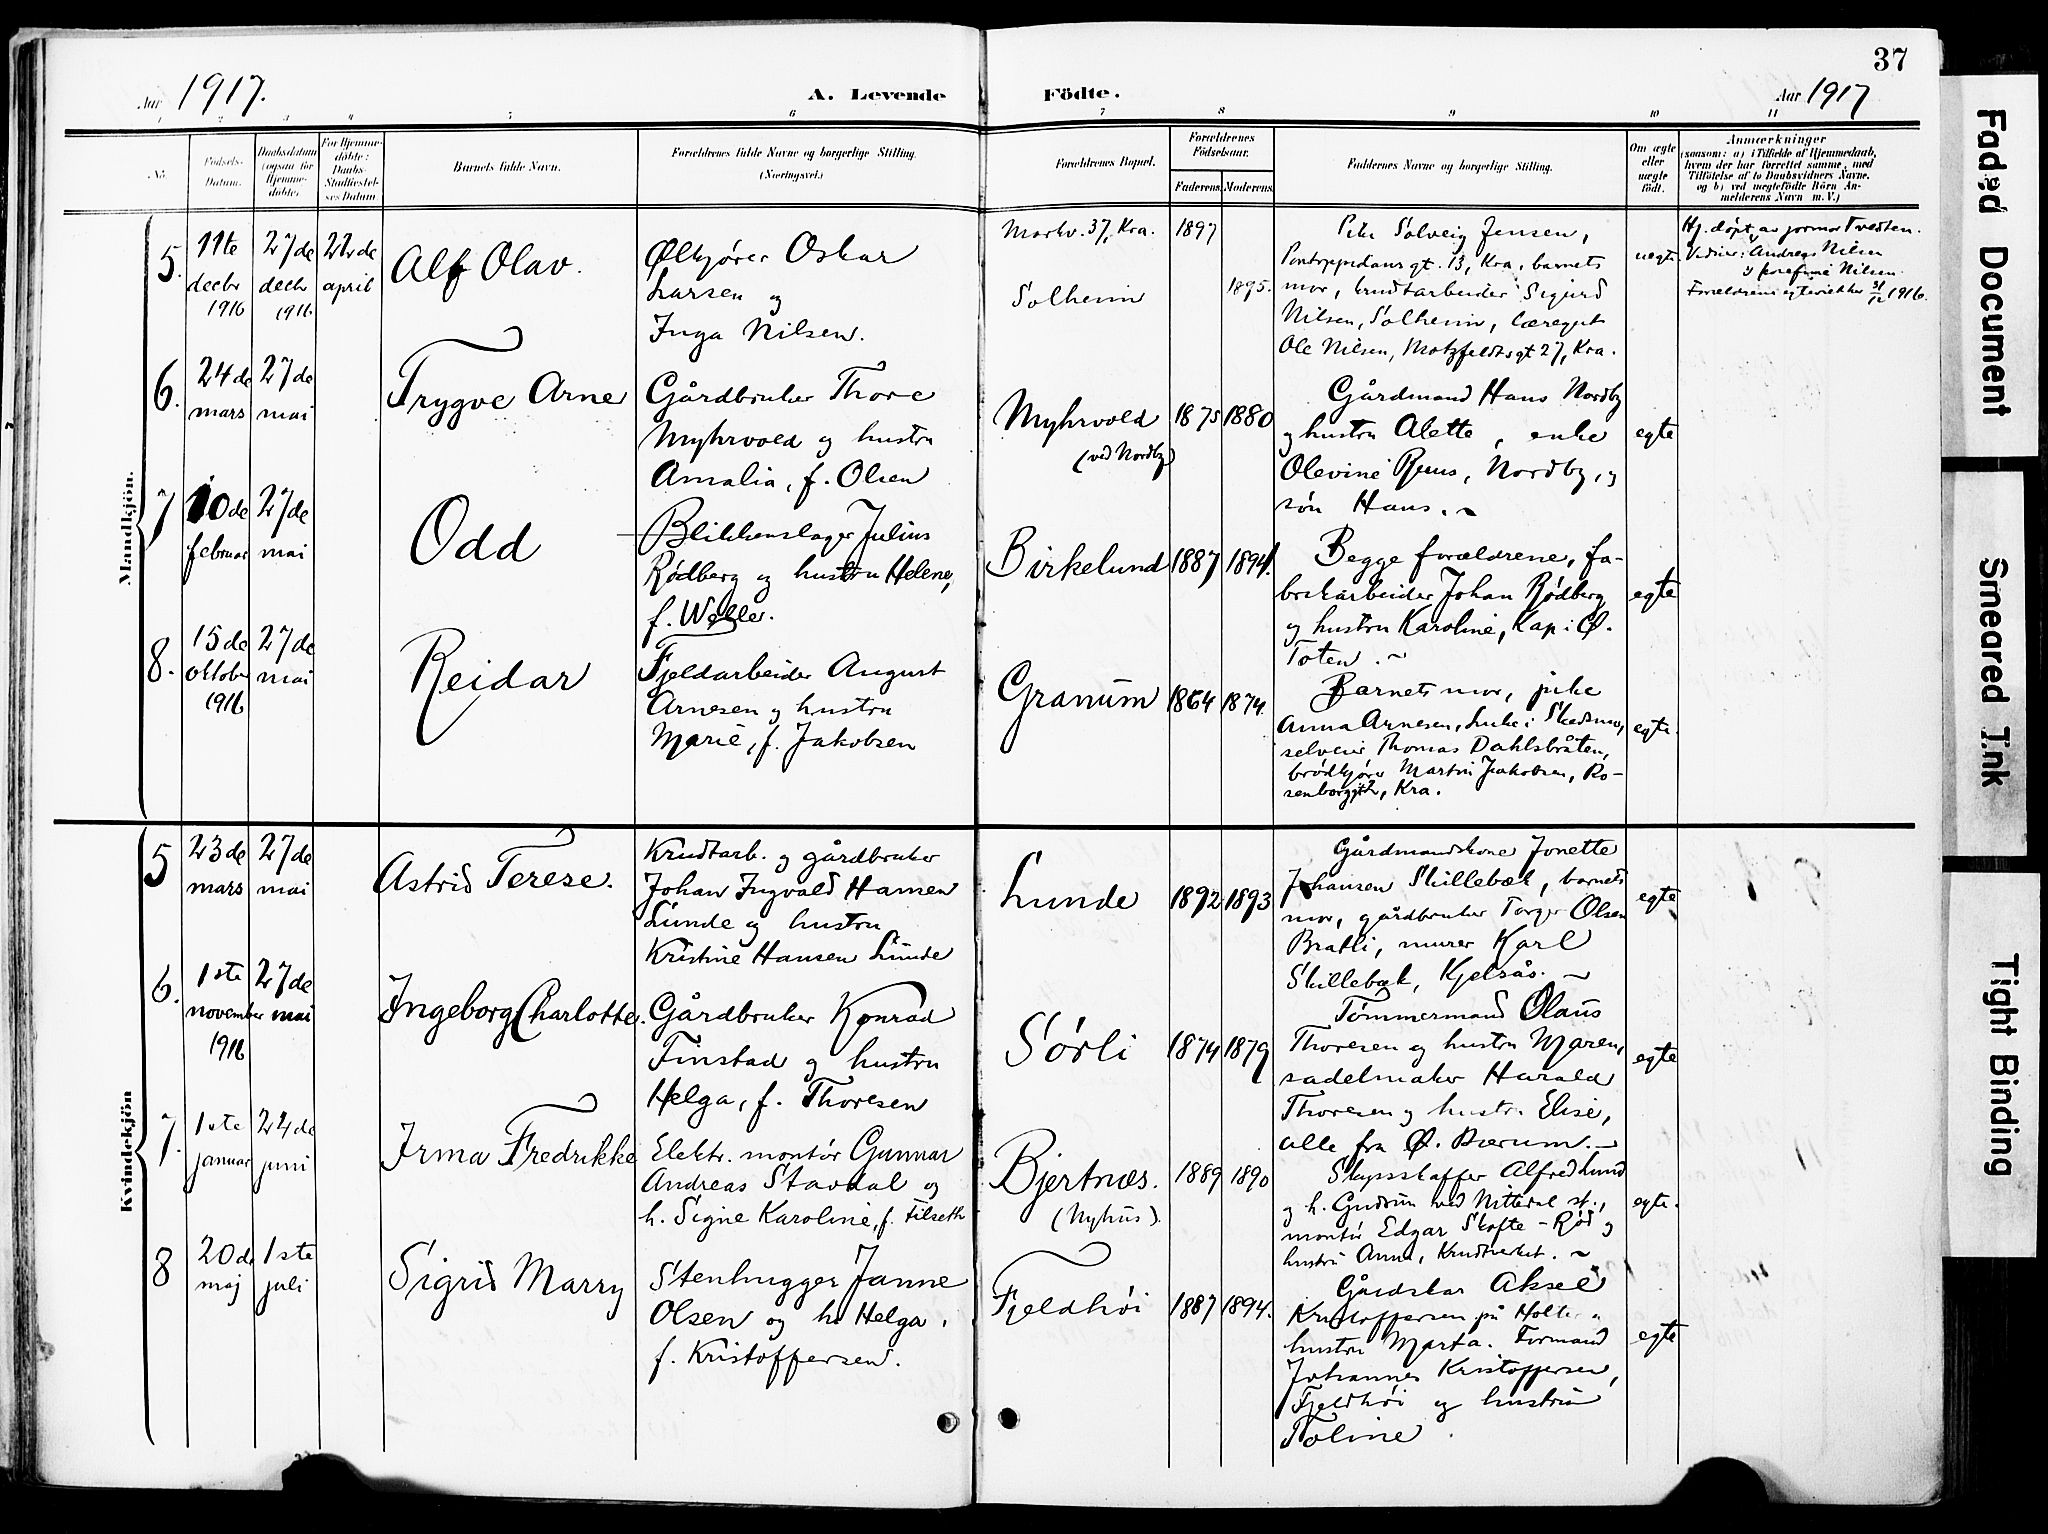 37
Aar 1917.
A. Levende Födte.
Aar 1917
1 2 3 4 5 6 7 8 9 10 11
No.
Födsels-
Datum.
Daabsdatum
(ogsaa for
Hjemme-
döbte).
For Hjemme-
döbte:
Daabs-
Stadfæstel-
ses Datum
Barnets fulde Navn.
Forældrenes fulde Navne og borgerlige Stilling.
(Næringsvei.)
Forældrenes Bopæl.
Forældrenes
Födselsaar.
Faderens. Moderens.
Faddernes Navne og borgerlige Stilling.
Om ægte
eller
uægte
födt.
Anmærkninger
(saasom: a) i Tilfælde af Hjemmedaab,
hvem der har forrettet samme, med
Tilföielse af to Daabsvidners Navne.
og b) ved uægtefödte Börn An-
melderens Navn m. V.)
Mandkjön.
5.
11te
decbr
1916
27de
decbr
1916
22de
april
Alf Olav.
Ølkjører Oskar
Larsen og
Inga Nilsen.
Markv. 37, Kra.
Solheim
1897
1895.
Pike Solveig Jensen,
Pontoppidans gt. 13, Kra. barnets
mor, krudtarbeider Sigurd
Nilsen, Solheim, læregut
Ole Nilsen, Motzfeldtsgt 27, Kra.
uegte
Hj. døpt av jormor Tvedten.
Vidner: Andreas Nilsen
og Josefine Nilsen.
Forældrene egteviet her 31/12 1916.
6.
24de
mars
27de
mai
Trygve Arne
Gårdbruker Thore
Myhrvold og hustru
Amalia, f. Olsen
Myhrvold
(ved Nordby)
1875
1880
Gårdmand Hans Nordby
og hustru Alette, enke
Olevine Ruus, Nordby, og
søn Hans.
egte
7
10de
februar
27de
mai
Odd
Blikkenslager Julius
Rødberg og hustru Helene,
f. Weller.
Birkelund
1887
1894.
Begge forældrene, fa-
brikarbeider Johan Rødberg
og hustru Karoline, Kap i Ø.
Toten.
egte
8.
15de
oktober
1916
27de
mai
Reidar
Fjeldarbeider August
Arnesen og hustru
Marie, f. Jakobsen
Granum
1864
1874.
Barnets mor, pike
Anna Arnesen, Luke i Skedsmo,
selveier Thomas Dahlsbråten,
brødkjører Martin Jakobsen, Ro-
senborggt, Kra.
egte.
Kvindekjön
5
23de
mars
27de
mai
Astrid Terese.
Krudtarb. og gårdbruker
Johan Ingvald Hansen
Lunde og hustru
Kristine Hansen Lunde
Lunde
1892
1893
Gårdmandskone Jonette
Johansen Skillebæk, barnets
mor, gårdbruker Torger Olsen
Bratli, murer Karl
Skillebæk, Kjelsås.
egte
6.
1ste
november
1916
27de
mai
Ingeborg Charlotte.
Gårdbruker Konrad
Finstad og hustru
Helga, f. Thoresen
Sørli
1874
1879
Tømmermand Olaus
Thoresen og hustru Maren,
sadelmaker Harald
Thoresen og hustru Elise,
alle fra Ø. Bærum.
egte
7.
1ste
januar
24de
juni
Irma Fredrikke
Elektr. montør Gunnar
Andreas Stavdal og
h. Signe Karoline, f. Tilseth
Bjertnæs.
(Nyhus).
1889
1890
Skysskaffer Alfred Lund
og h. Gudrun ved Nittedal st.,
montør Edgar Skofte-Rød og
hustru Anna, Krudtverket.
egte.
8
20de
maj
1ste
juli
Sigrid Marry
Stenhugger Janne
Olsen og h. Helga,
f. Kristoffersen.
Fjeldhøi
1887
1894.
Gårdskar Aksel
Kristoffersen på Holte og
hustru Marta. Formand
Johannes Kristoffersen,
Fjeldhøi og hustru
Toline.
egte
Faded Document
Smeared Ink
Tight Binding